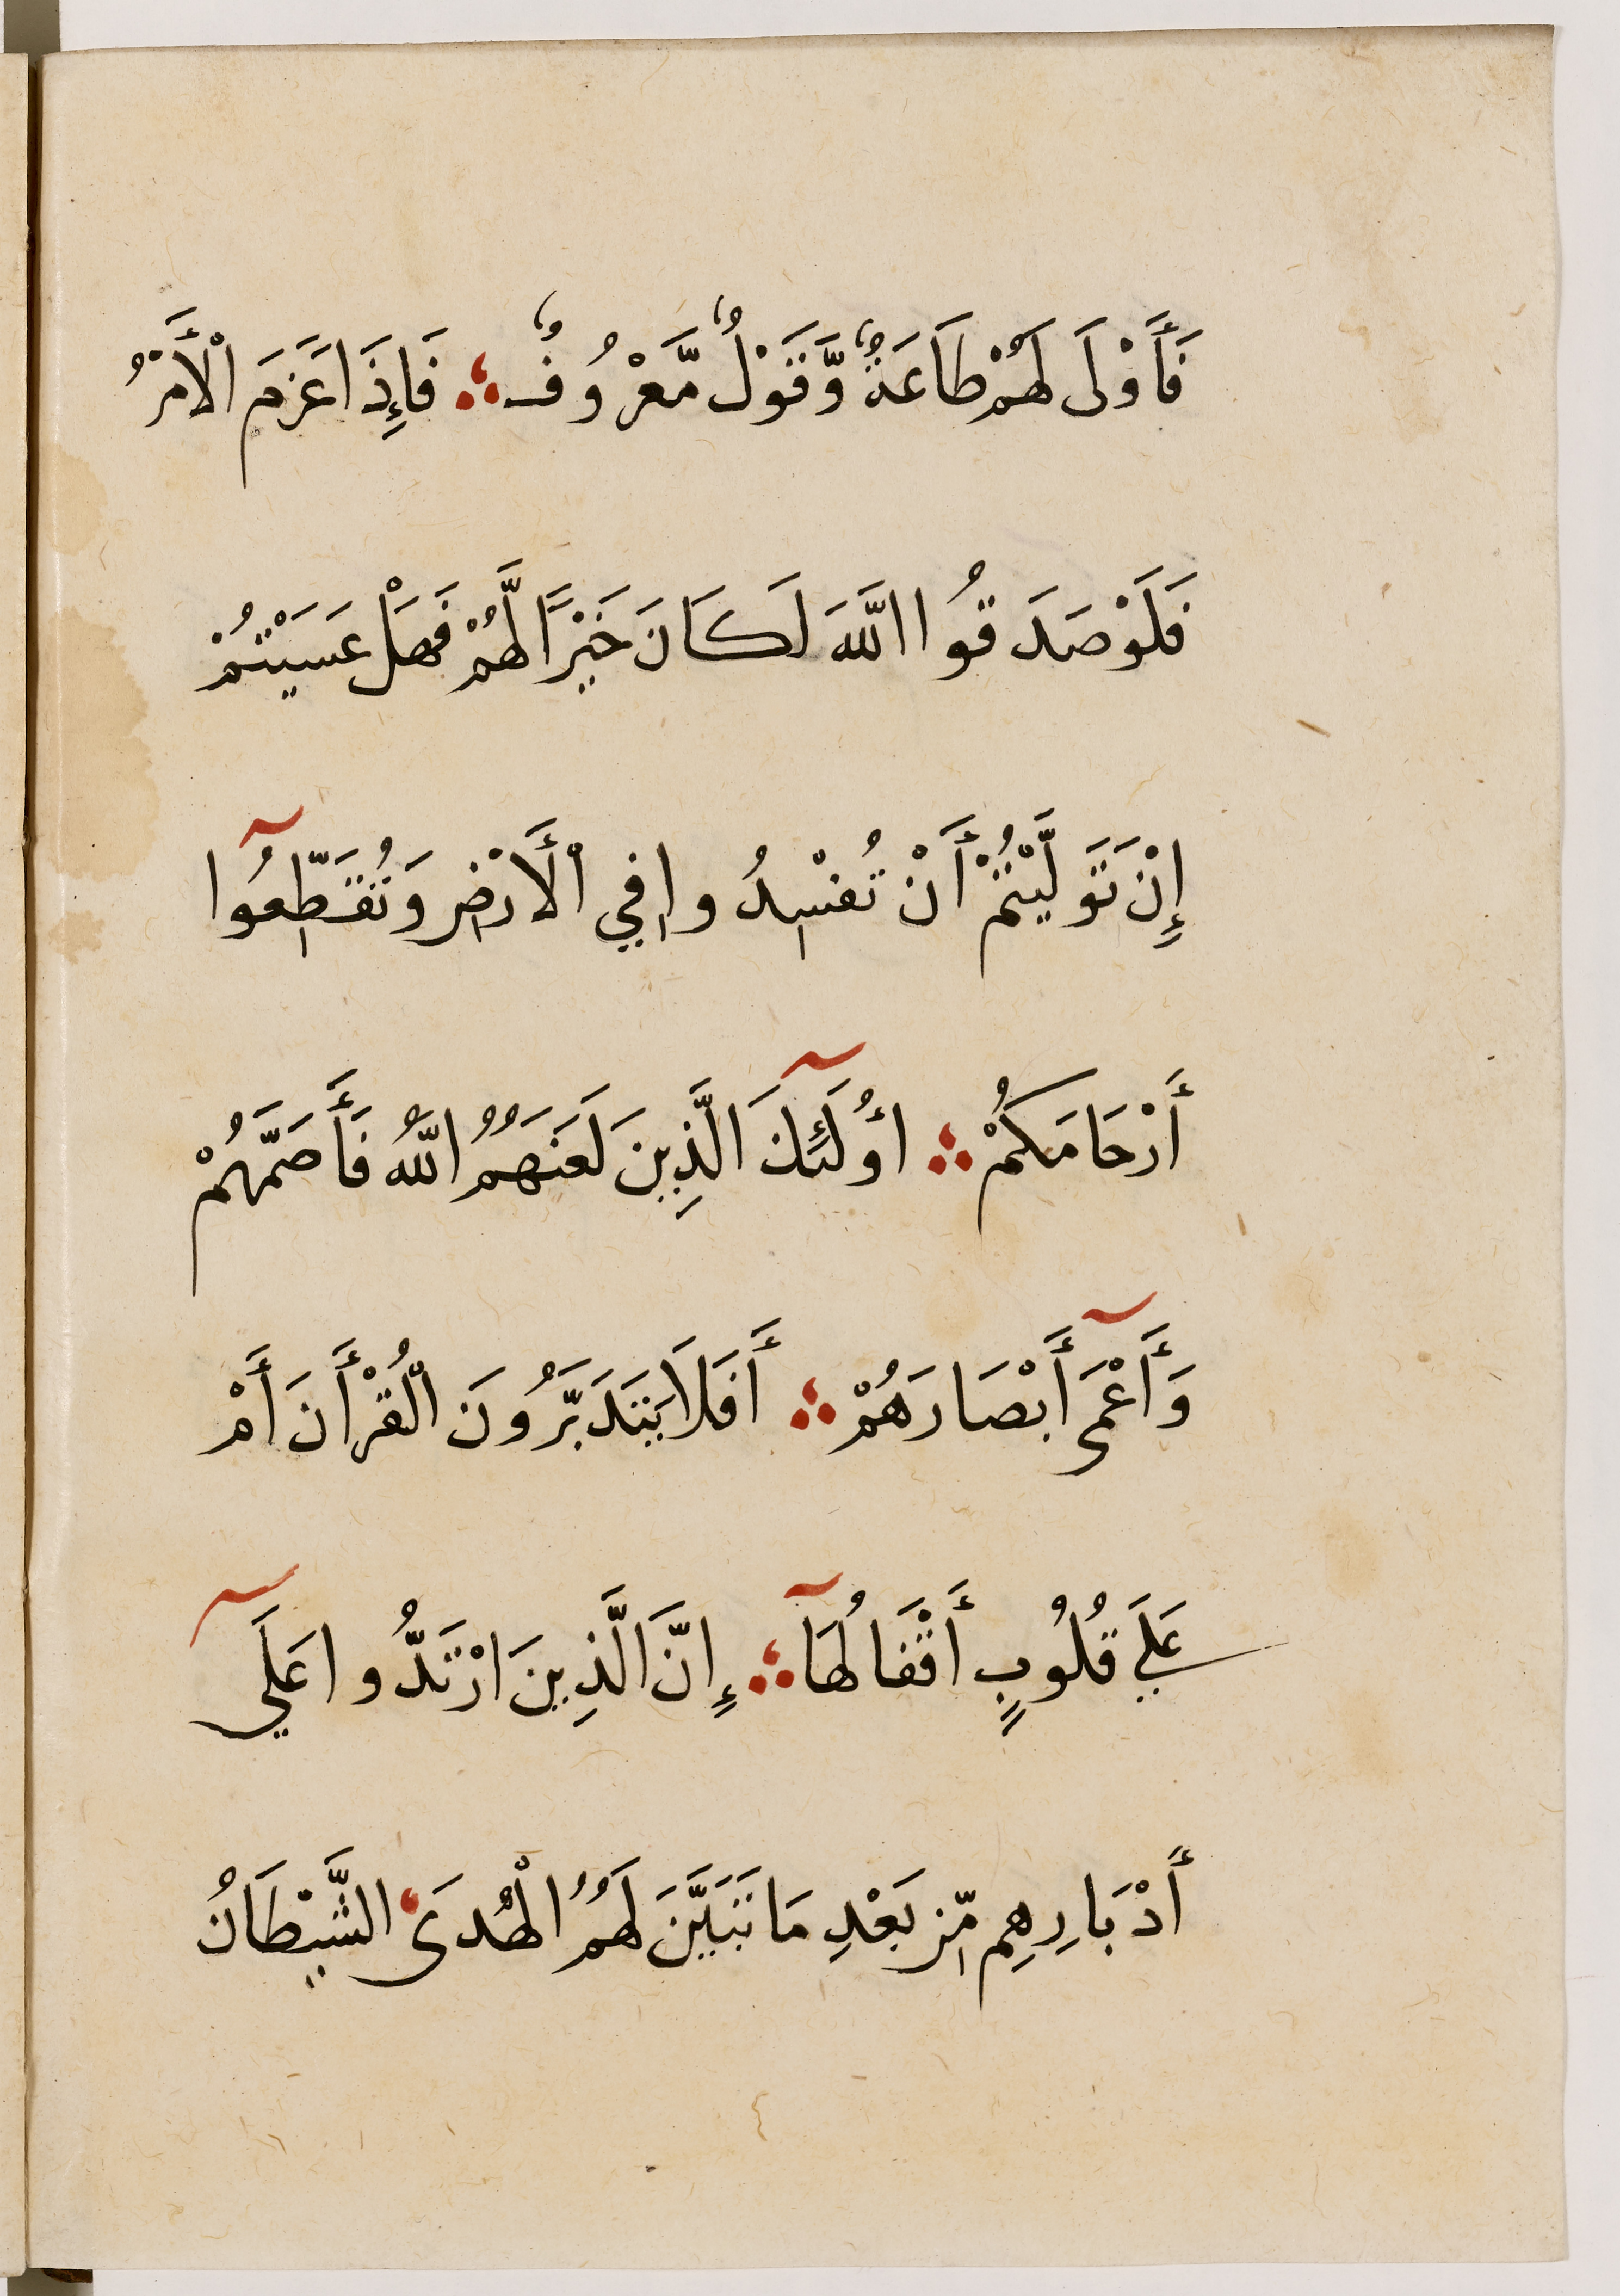 فَأَوْلَى لَهُمْ طَاعَةٌ وَّقَوْلٌ مَّعْرُوفٌ ؞ فَإِذَا عَزَمَ الْأَمْرُ
فَلَوْ صَدَقُوا اللَّهَ لَكَانَ خَيْرًا لَّهُمْ فَهَلْ عَسَيْتُمْ
إِنْ تَوَلَّيْتُمْ أَنْ تُفْسِدُوا فِي الْأَرْضِ وَتُقَطِّعُوٓا
أَرْحَامَكُمْ ؞ أُولَٓئِكَ الَّذِينَ لَعَنَهُمُ اللَّهُ فَأَصَمَّهُمْ
وَأَعْمَىٓ أَبْصَارَهُمْ ؞ أَفَلَا يَتَدَبَّرُونَ الْقُرْأَنَ أَمْ
عَلَي قُلُوبٍ أَقْفَالُهَآ ؞ إِنَّ الَّذِينَ ارْتَدُّوا عَلَيٓ
أَدْبَارِهِم مِّن بَعْدِ مَا تَبَيَّنَ لَهُمُ الْهُدَى الشَّيْطَانُ